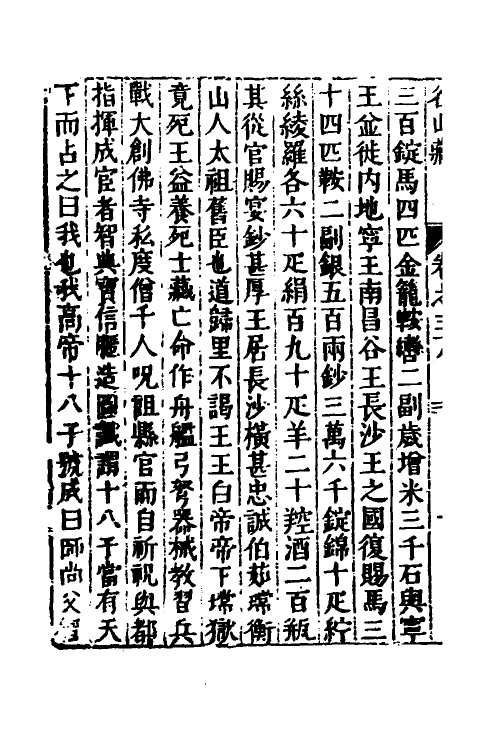 名山藏 卷之三十八 三
三百錠馬四匹金籠鞍轡二副歲增米三千石與寧
王並徙内地寧王南昌谷王長沙王之國復賜馬三
十四匹鞍二副銀五百兩鈔三萬六千錠錦十疋紵
絲綾羅各六十疋絹百九十疋羊二十羫酒二百瓶
其從官賜宴鈔甚厚王居長沙橫甚忠誠伯茹瑺衡
山人太祖舊臣也道歸里不謁王王白帝帝下瑺獄
竟死王益養死士藏亡命作舟艦弓弩器械教習兵
戰大創佛寺私度僧千人呪詛縣官而自祈祝與都
指揮成宦者智典寶信
造圖讖謂十八子當有天
下而占之曰我也我高帝十八子號成曰師尚父